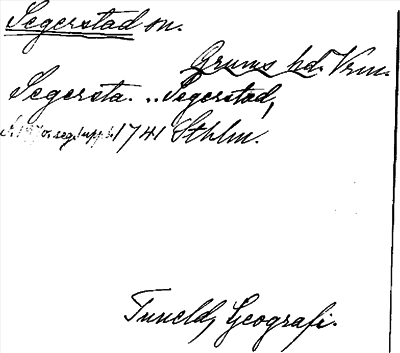 Segerstad sn.
Grums hd. Vrm.
Segersta. .. Segerstad,
1741 Sthlm.
Tuneld, Geografi.